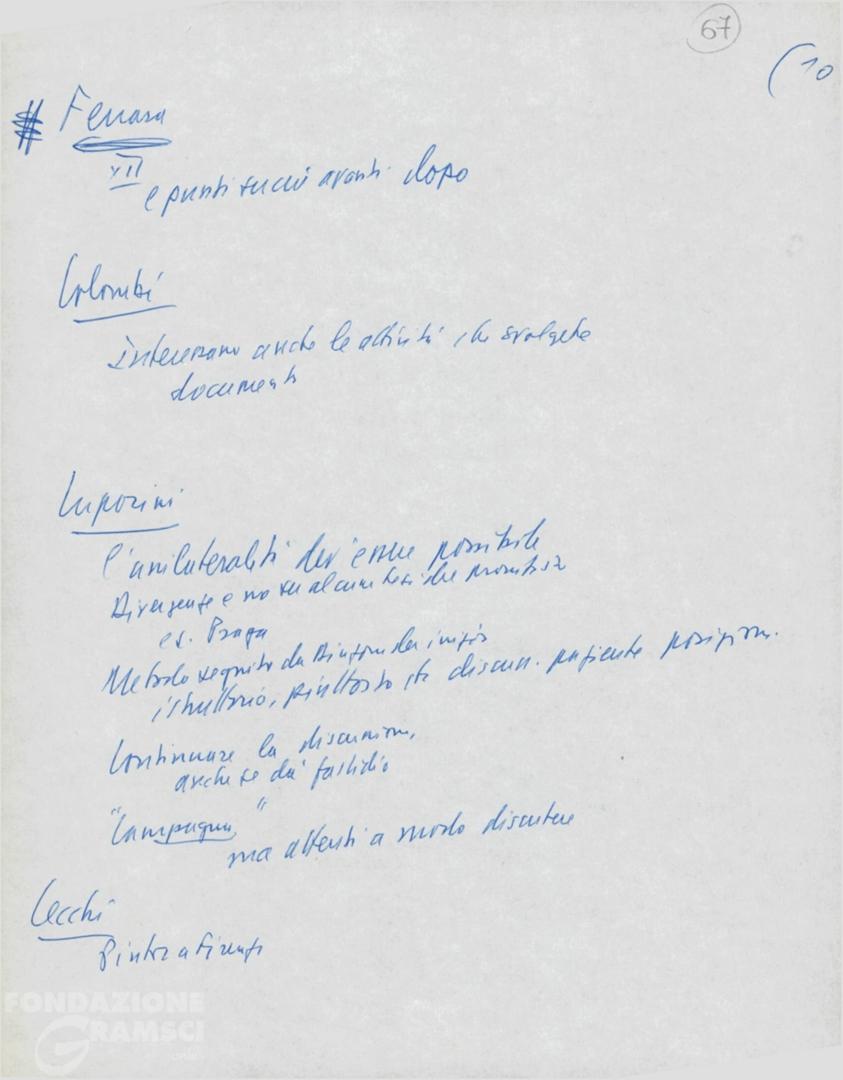 67
(10
# Ferrara
XII
e punti successivi avanti dopo
Colombi
Interessano anche le attività che svolgete
documenti
Luporini
l'unilateralità dev'essere possibile
Divergenze e no su alcune tesi del manifesto
es. Praga
Metodo seguito da
istruttorio, piuttosto che discuss. paziente posizioni
Continuare la discussione,
anche se dà fastidio
"Campagna"
ma attenti a modo discutere
Cecchi
Pintor a Firenze
FONDAZIONE
GRAMSCI